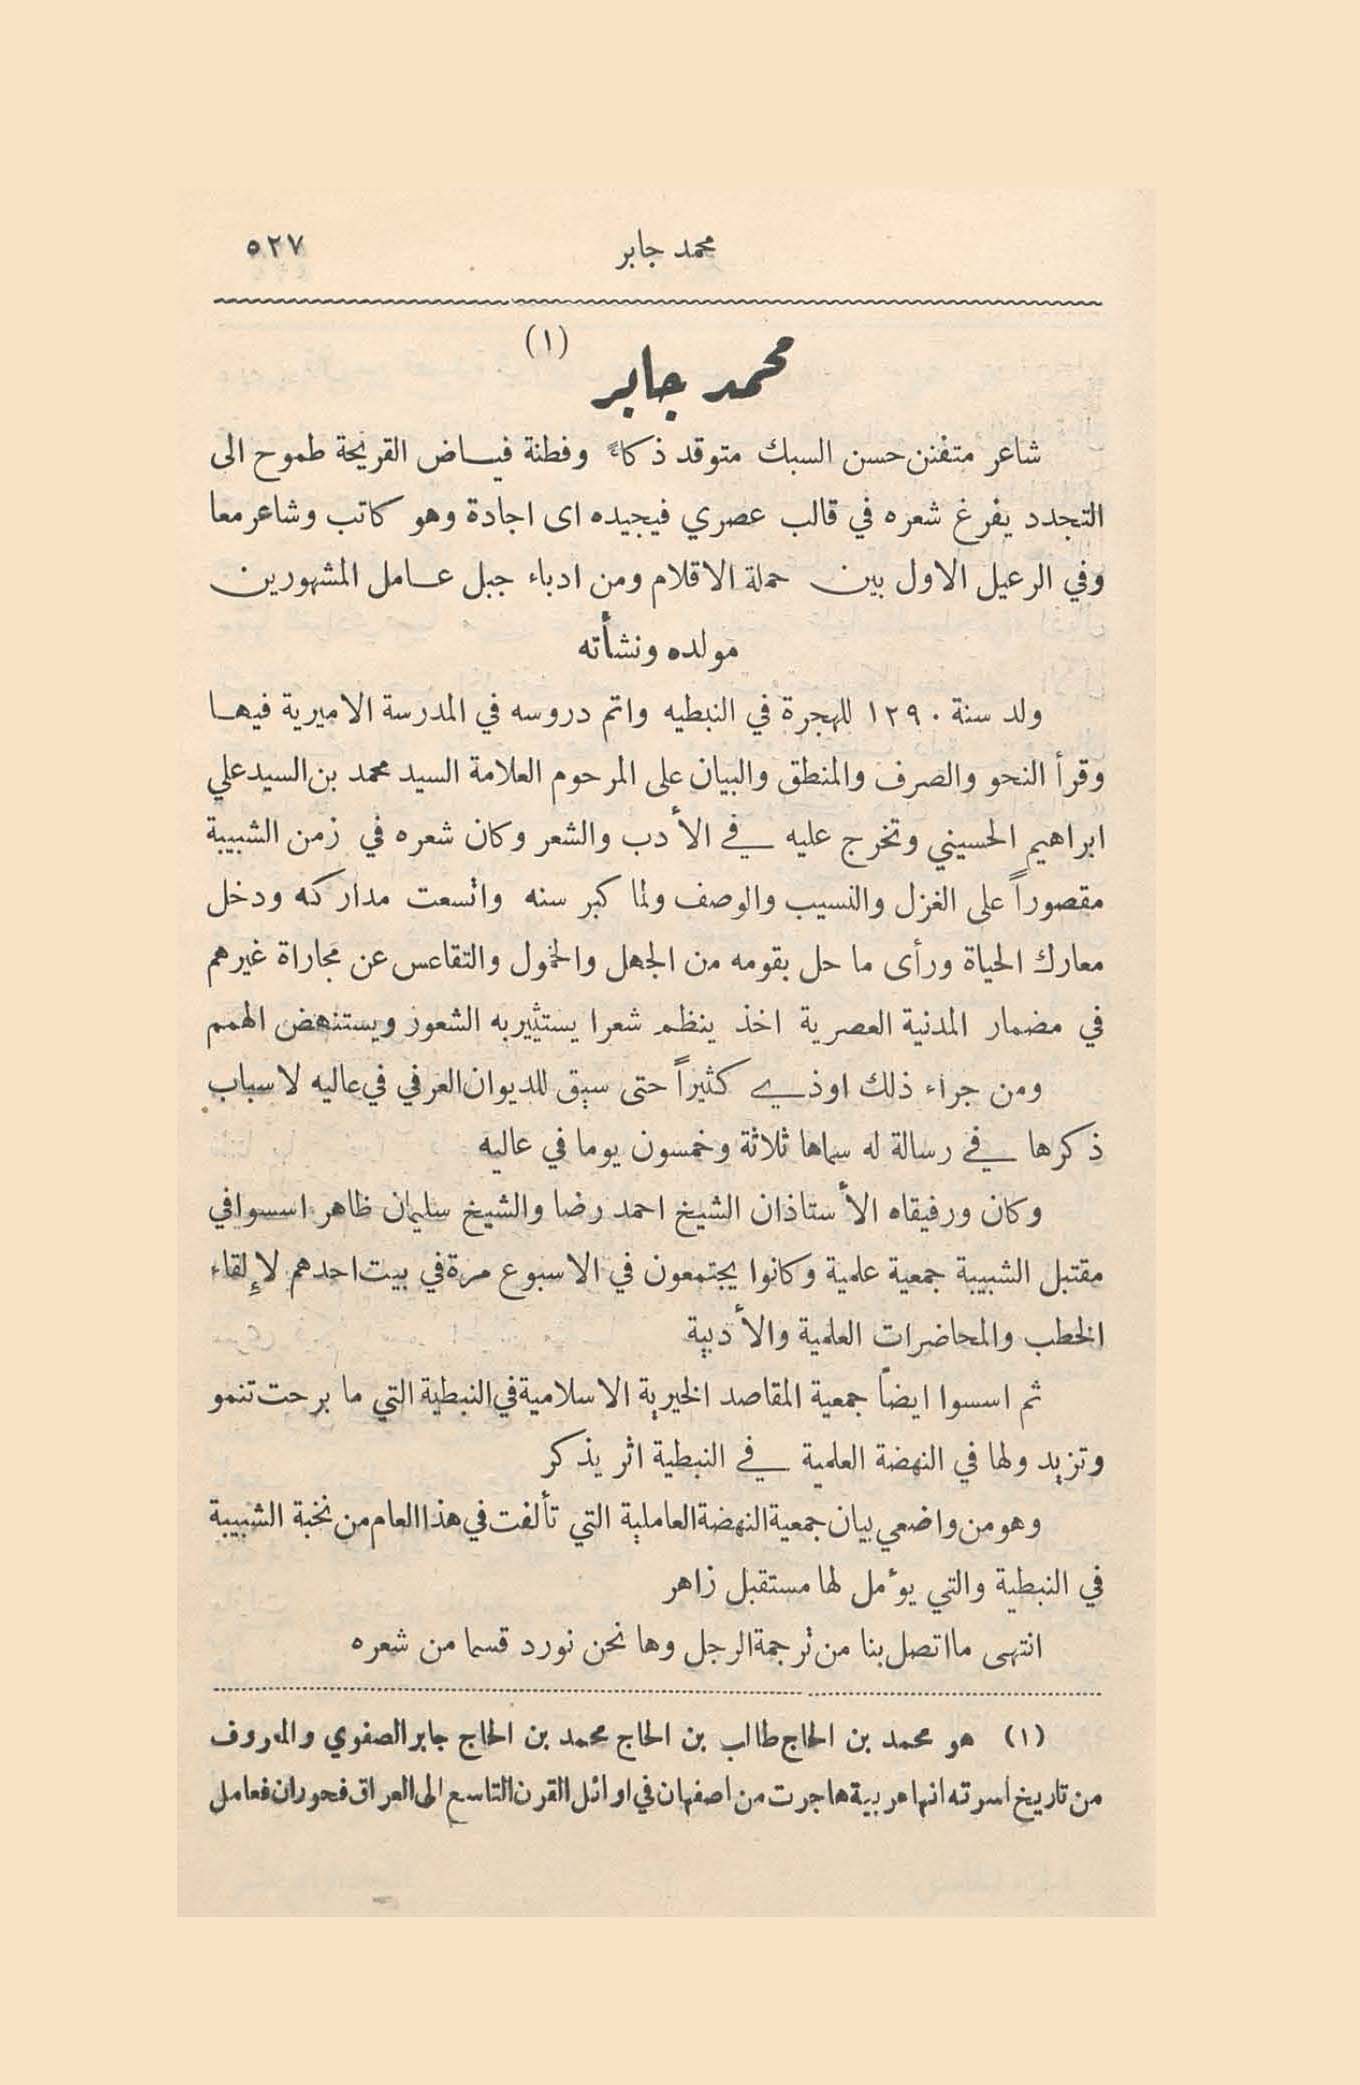 محمد جابر ٥٢٧
محمد جابر (١)
شاعر متفنن حسن السبك متوقد ذكاءً وفطنة فياض القريحة طموح الى
التجدد يفرغ شعره في قالب عصري فيجيده اى اجادة وهو كاتب وشاعر معا
وفي الرعيل الاول بين حملة الاقلام ومن ادباء جبل عامل المشهورين
مولده ونشأته
ولد سنة ١٢٩٠ للهجرة في النبطيه واتم دروسه في المدرسة الاميرية فيها
وقرأ النحو والصرف والمنطق والبيان على المرحوم العلامة السيد محمد بن السيد علي
ابراهيم الحسيني وتخرج عليه في الأدب والشعر وكان شعره في زمن الشبيبة
مقصوراً على الغزل والنسيب والوصف ولما كبر سنه واتسعت مداركه ودخل
معارك الحياة ورأى ما حل بقومه من الجهل والخمول والتقاعس عن مجاراة غيرهم
في مضمار المدنية العصرية اخذ ينظم شعرا يستثير به الشعور ويستنهض الهمم
ومن جراء ذلك اوذي كثيراً حتى سيق للديوان العرفي في عاليه لاسباب
ذكرها في رسالة له سماها ثلاثة وخمسون يوما في عاليه
وكان ورفيقاه الأستاذان الشيخ احمد رضا والشيخ سليمان ظاهر اسسوا في
مقتبل الشبيبة جمعية علمية وكانوا يجتمعون في الاسبوع مرة في بيت احدهم لإلقاء
الخطب والمحاضرات العلمية والأدبية
ثم اسسوا ايضاً جمعية المقاصد الخيرية الاسلامية في النبطية التي ما برحت تنمو
وتزيد ولها في النهضة العلمية في النبطية اثر يذكر
وهو من واضعي بيان جمعية النهضة العاملية التي تألفت في هذا العام من نخبة الشبيبة
في النبطية والتي يؤمل لها مستقبل زاهر
انتهى ما اتصل بنا من ترجمة الرجل وها نحن نورد قسما من شعره
(١) هو محمد بن الحاج طالب بن الحاج محمد بن الحاج جابر الصفوي والمعروف
من تاريخ اسرته انها عربية هاجرت من اصفهان في اوائل القرن التاسع الى العراق فحوران فعامل